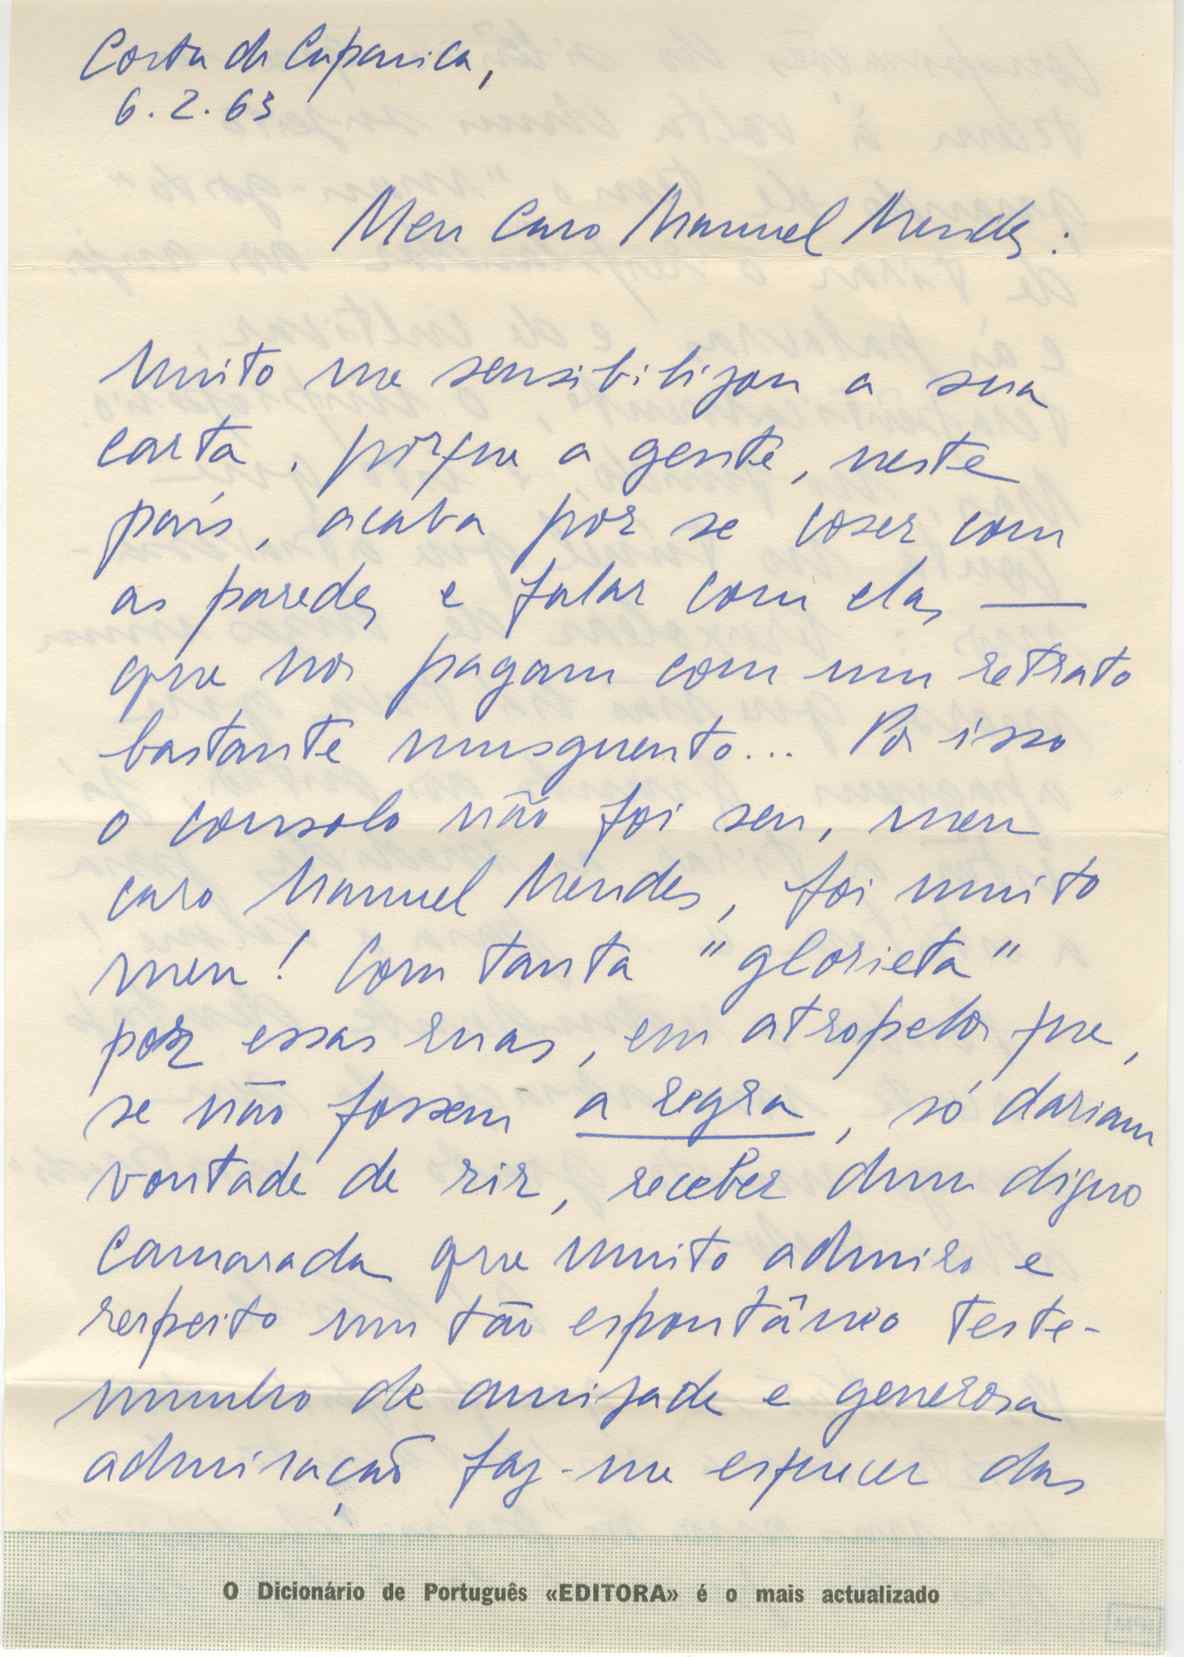 Costa da Caparica,
6.2.63
Meu Caro Manuel Mendes:
Muito me sensibilizou a sua
carta, porque a gente, neste
país, acaba por se coser com
as paredes e falar com elas —
que nos pagam com um retrato
bastante musguento... Por isso
o consolo não foi seu, meu
caro Manuel Mendes, foi muito
meu! Com tanta "glorieta"
por essas ruas, em atropelos que,
se não fossem a regra, só dariam
vontade de rir, receber dum digno
Camarada que muito admiro e
respeito um tão espontâneo teste-
munho de amizade e generosa
admiração faz-me esquecer das
O Dicionário de Português «EDITORA» é o mais actualizado